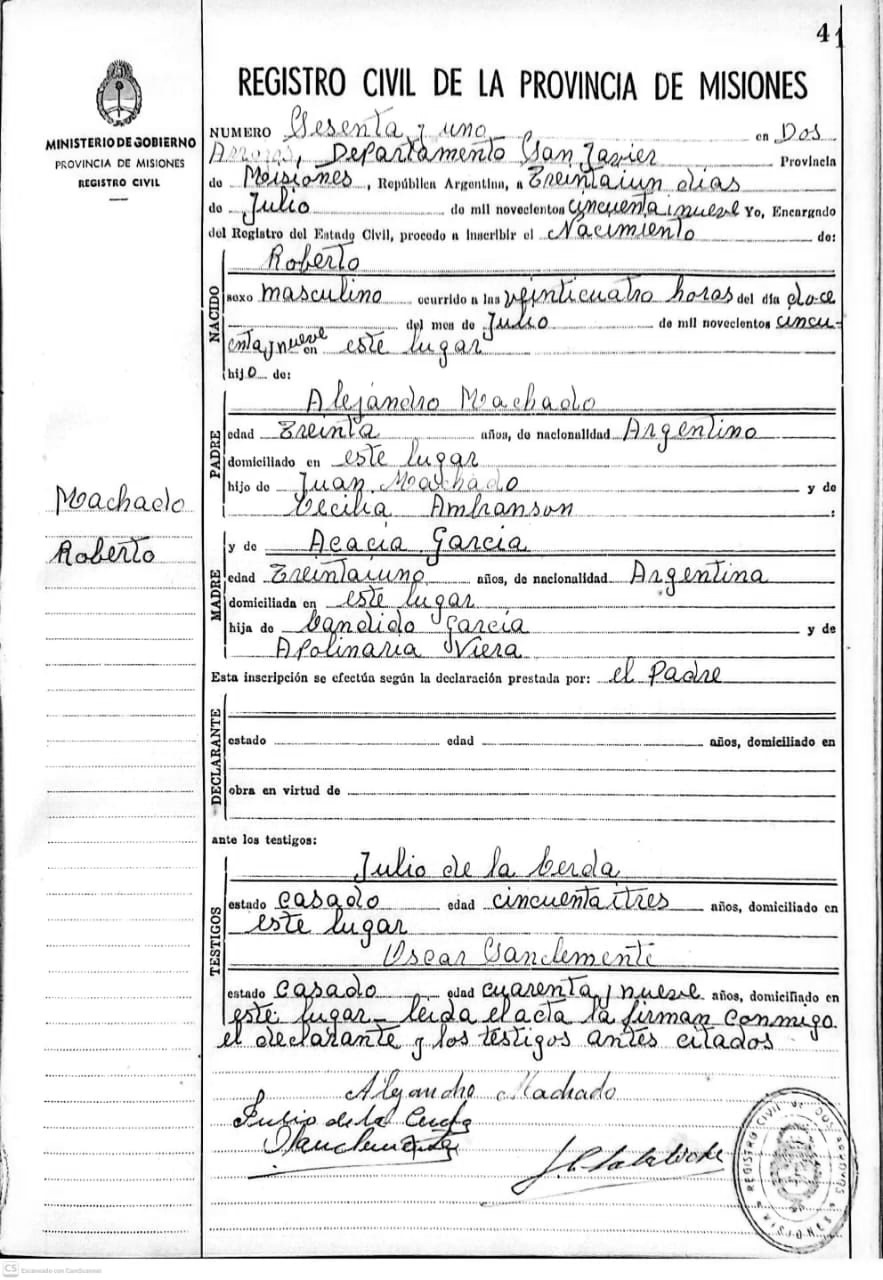 41
REGISTRO CIVIL DE LA PROVINCIA DE MISIONES
MINISTERIO DE GOBIERNO
PROVINCIA DE MISIONES
REGISTRO CIVIL
NUMERO Sesenta y uno en Dos
Arroyos, Departamento San Javier Provincia
de Misiones, República Argentina, a Treintaiun dias
de Julio de mil novecientos cincuentainueve Yo, Encargado
del Registro del Estado Civil, procedo a inscribir el Nacimiento de:
NACIDO
Roberto
sexo masculino ocurrido a las veinticuatro horas del día doce
del mes de Julio de mil novecientos cincu-
enta y nueve en este lugar
hijo de:
PADRE
Alejandro Machado
edad Treinta años, de nacionalidad Argentino
domiciliado en este lugar
hijo de Juan Machado y de
Cecilia Ambranson
Machado
Roberto
MADRE
y de Acacia Garcia
edad Treintaiuno años, de nacionalidad Argentina
domiciliada en este lugar
hija de Candido Garcia y de
Apolinaria Viera
Esta inscripción se efectúa según la declaración prestada por: el Padre
DECLARANTE
estado edad años, domiciliado en
obra en virtud de
ante los testigos:
TESTIGOS
Julio de la Cerda
estado casado edad cincuentaitres años, domiciliado en
este lugar
Oscar Sanclemente
estado casado edad cuarenta y nueve años, domiciliado en
este lugar leida el acta la firman conmigo
el declarante y los testigos antes citados
Alejandro Machado
Julio de la Cerda
Sanclemente
REGISTRO CIVIL DE DOS ARROYOS
MISIONES
CS Escaneado con CamScanner